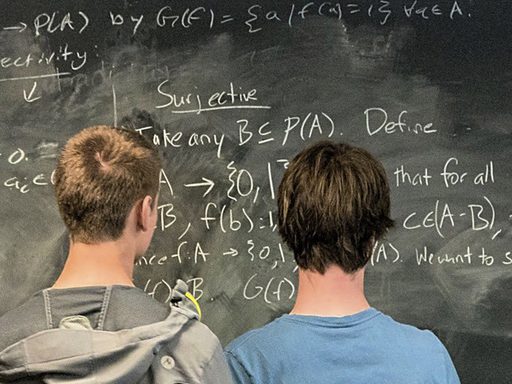 → P(A) by G(f) = {a | f(a) = 1} ∀a∈A.
ectivity:
↓
Surjective
Take any B ⊆ P(A). Define
0. A → {0,1 that for all
aᵢ∈ B, f(b)=1, c∈(A-B),
f:A → {0,1 A). We want to s
(f) B. G(f)